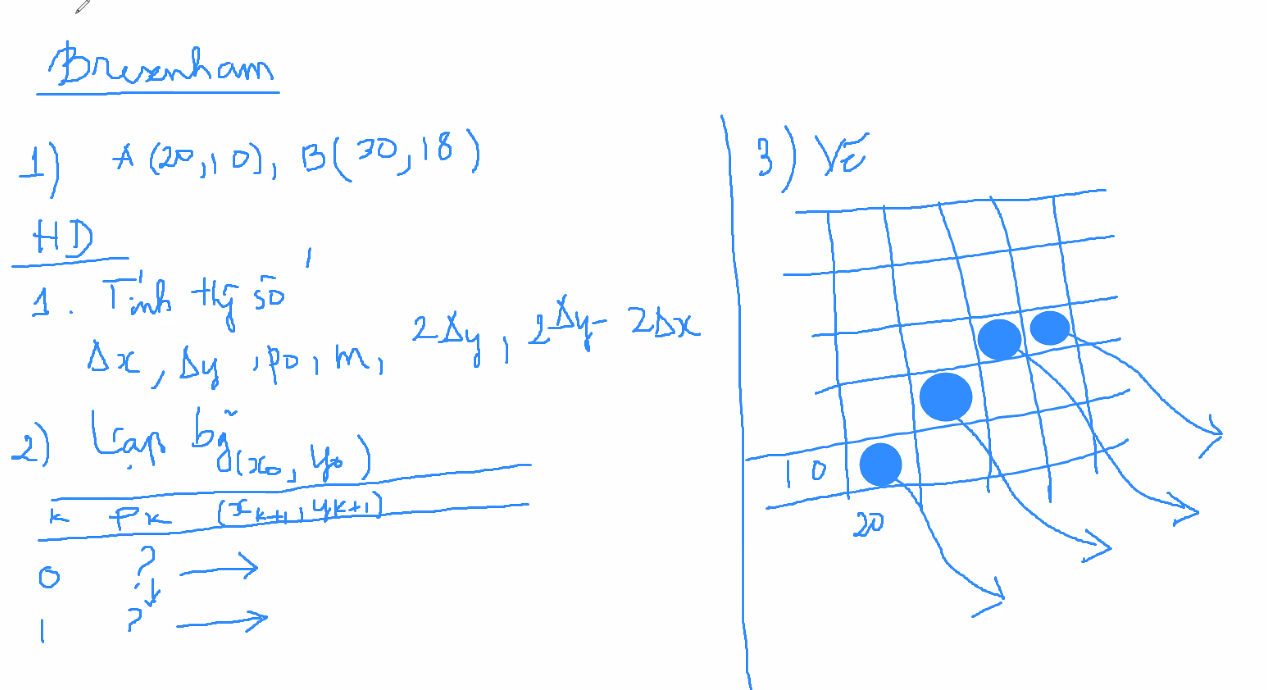 Bresenham
1) A(20,10), B(30,18)
HD
1. Tính thý số
Δx, Δy, p0, m, 2Δy, 2Δy - 2Δx
2) Lập bg (x0, y0)
k pk (xk+1, yk+1)
0 ?
1 ?
3) Vẽ
10
20